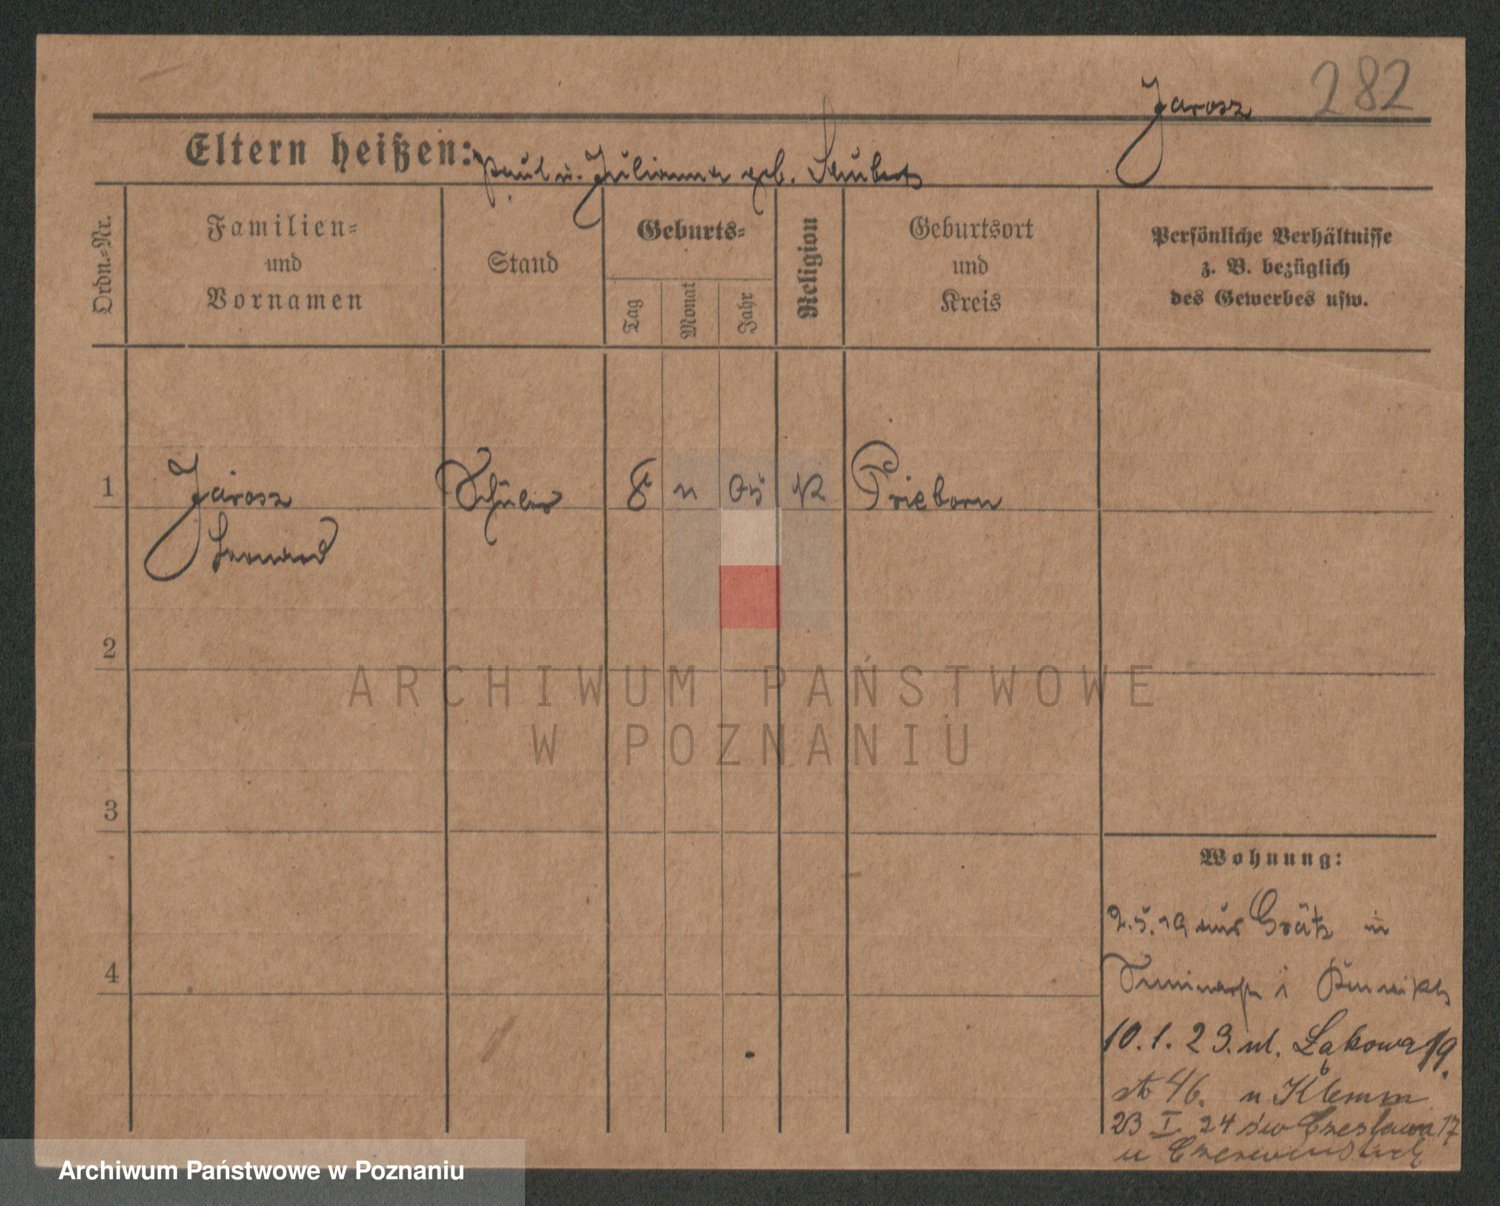 282
Jarosz
Eltern heißen: Paul u. Julianna geb. Schubert
Ordn.-Nr.
Familien-
und
Vornamen
Stand
Geburts-
Tag
Monat
Jahr
Religion
Geburtsort
und
Kreis
Persönliche Verhältnisse
z. B. bezüglich
des Gewerbes usw.
1 Jarosz Schüler 8 11 05 K Prieborn
2
3
4
Wohnung:
2.5.19 aus Grätz in
10.1.23. ul. Łąkowa 19.
46. u Klemm
23 I 24 św Czesława 17
u
ARCHIWUM PAŃSTWOWE
W POZNANIU
Archiwum Państwowe w Poznaniu